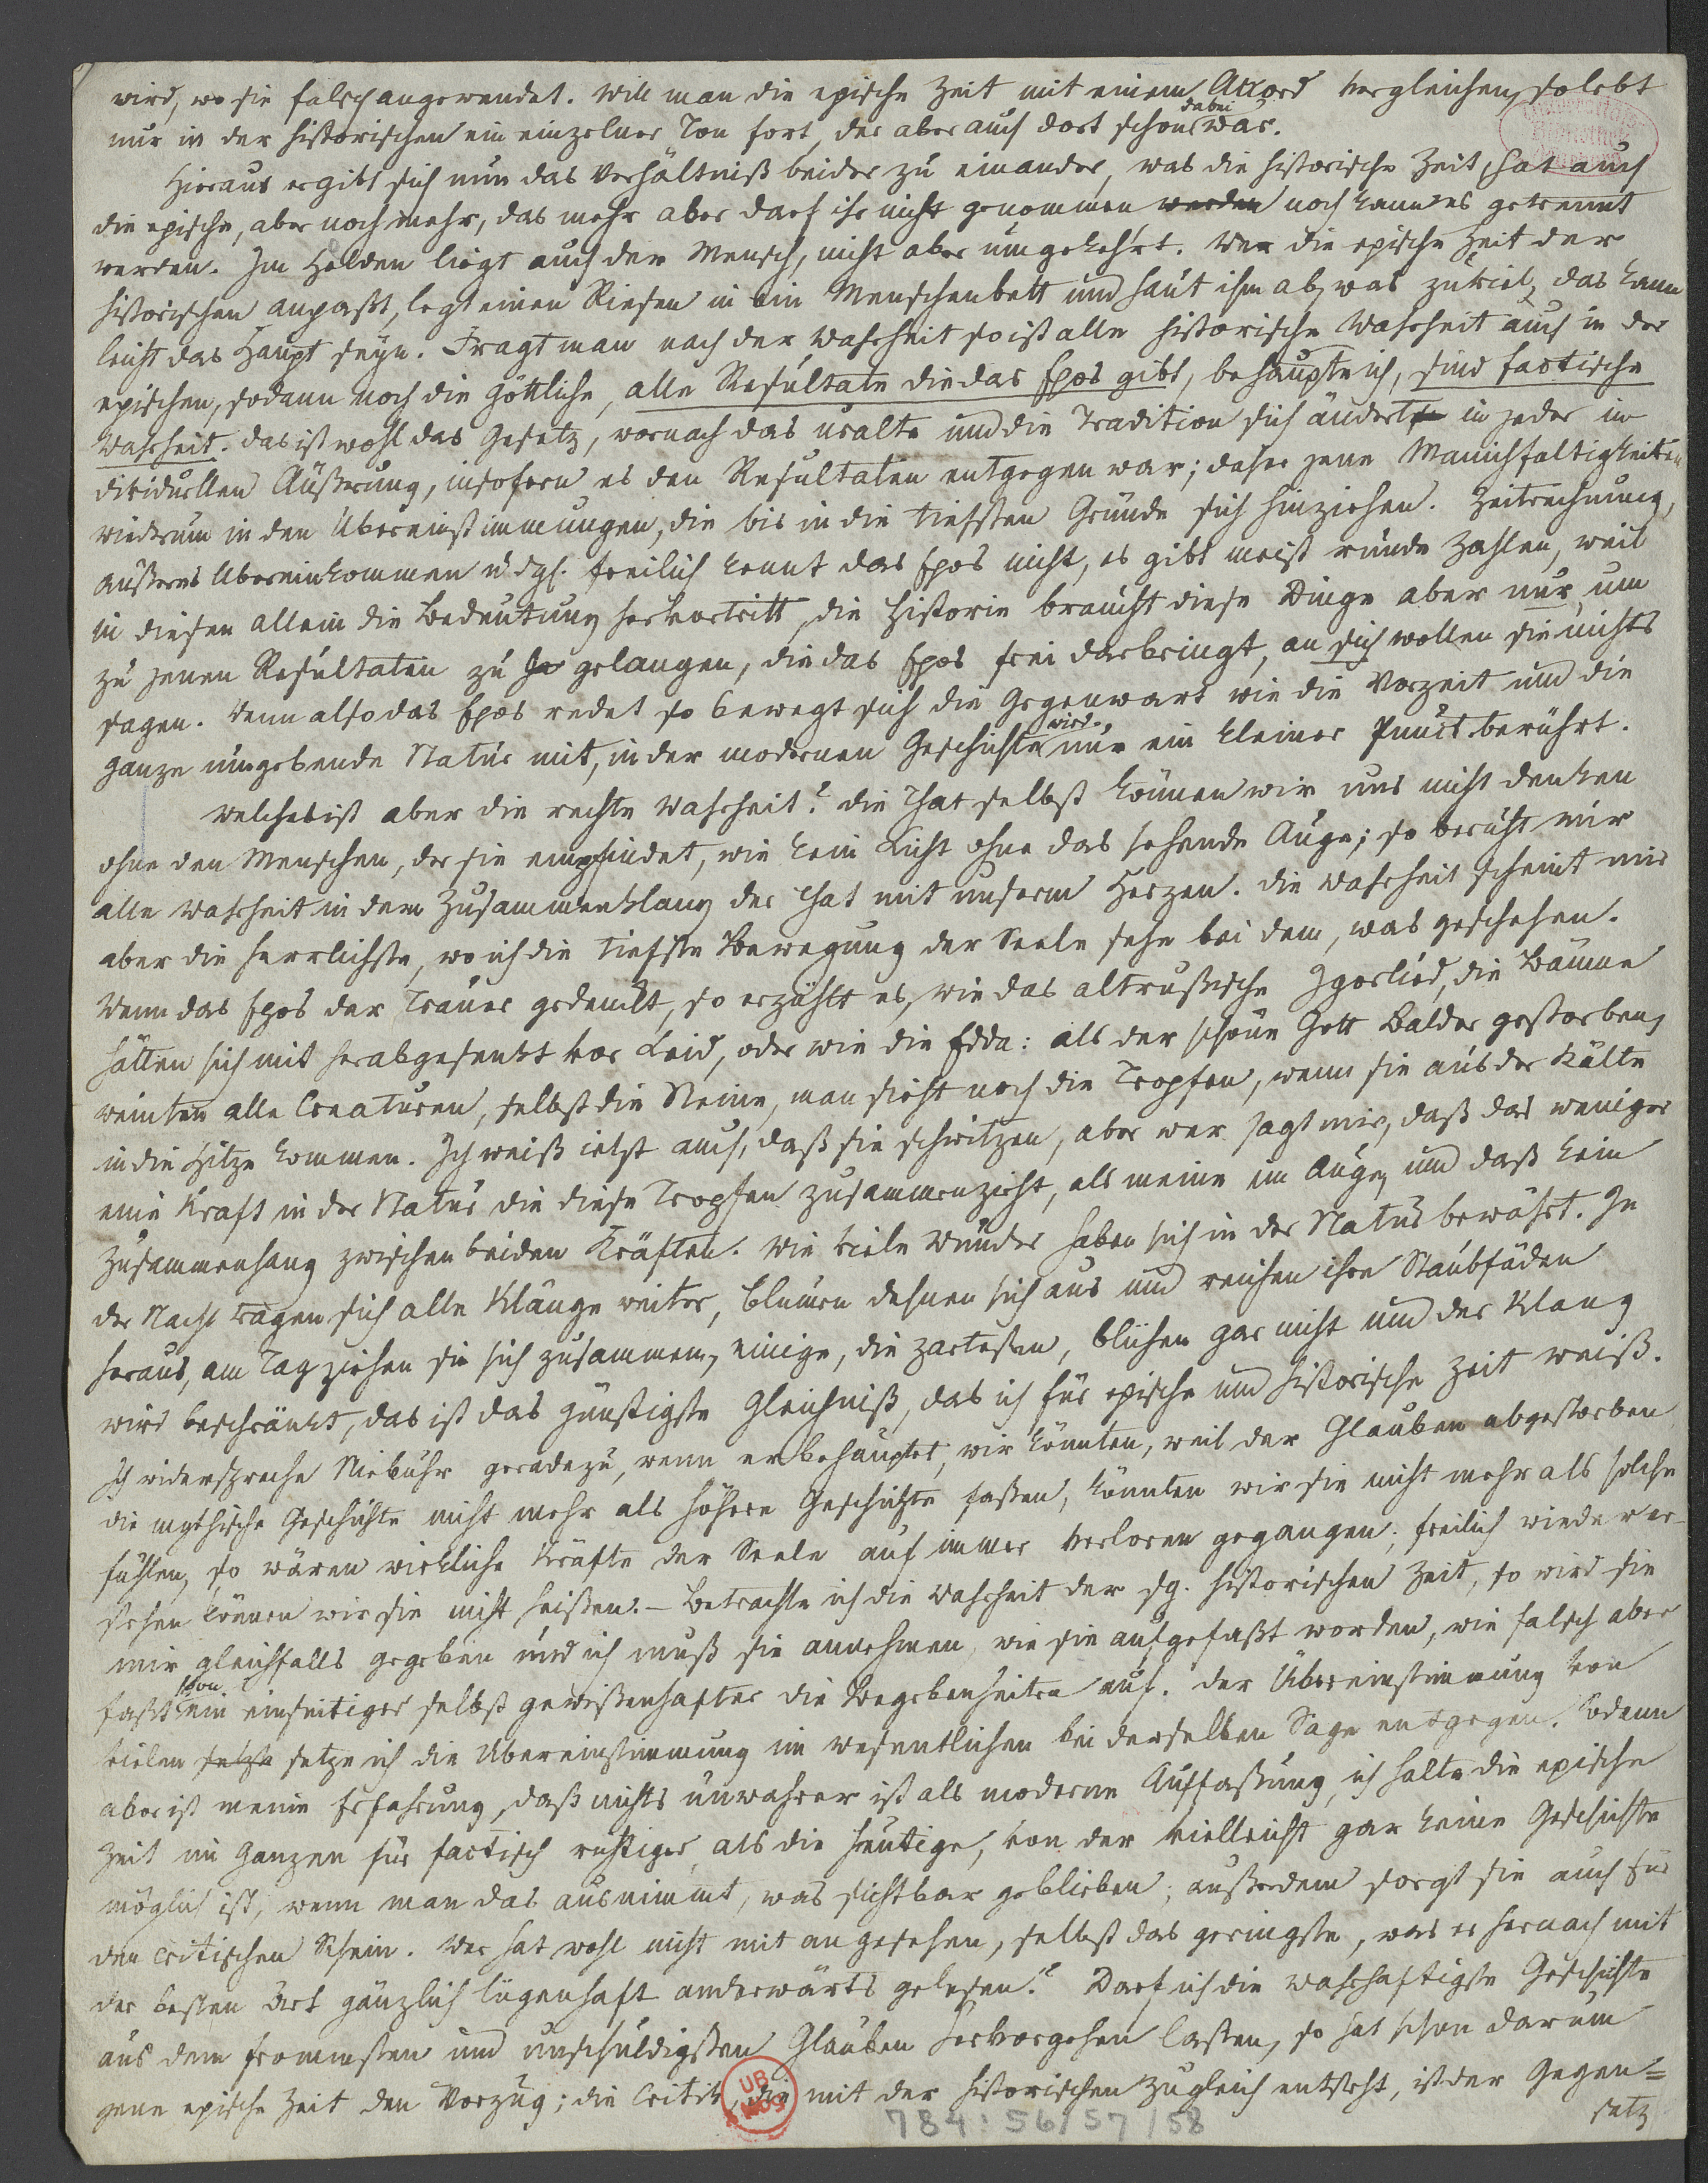 wird, wo sie falsch angewendet. Will man die epische Zeit mit einem Accord vergleichen, so lebt
nur in der historischen ein einzelner Ton fort, der aber auch dort schon dabei war.
Hieraus ergibt sich nun das Verhältniß beider zu einander, was die historische Zeit, hat auch
die epische, aber noch mehr, das mehr aber darf ihr nicht genommen werden noch kann es getrennt
werden. Im Helden liegt auch der Mensch, nicht aber umgekehrt. Wer die epische Zeit der
historischen anpaßt, legt einen Riesen in ein Menschenbett und haut ihm ab, was zuviel, das kann
leicht das Haupt seyn. Fragt man nach der Wahrheit so ist alle historische Wahrheit auch in der
epischen, sodann noch die göttliche, alle Resultate die das Epos gibt, behaupte ich, sind factische
Wahrheit. das ist wohl das Gesetz, wornach das uralte und die Tradition sich ändert in jeder in
dividuellen Äußerung, insofern es den Resultaten entgegen war; daher jene Manichfaltigkeiten
wiedrum in den Übereinstimmungen, die bis in die tiefsten Gründe sich hinziehen. Zeitrechnung,
äußeres Übereinkommen u. dgl. freilich kennt das Epos nicht, es gibt meist runde Zahlen, weil
in diesen allein die Bedeutung hervortritt, die Historie braucht diese Dinge aber nur, um
zu jenen Resultaten zu gelangen, die das Epos frei darbringt, an sich wollen sie nichts
sagen. Wenn also das Epos redet so bewegt sich die Gegenwart wie die Vorzeit und die
ganze umgebende Natur mit, in der modernen Geschichte wird nur ein kleiner Punct berührt.
Welches ist aber die rechte Wahrheit? die That selbst können wir uns nicht denken
ohne den Menschen, der sie empfindet, wie kein Licht ohne das sehende Auge; so beruht mir
alle Wahrheit in dem Zusammenklang der That mit unserm Herzen. die Wahrheit scheint mir
aber die herrlichste, wo ich die tiefste Bewegung der Seele sehe bei dem, was geschehen.
Wenn das Epos der Trauer gedenkt, so erzählt es, wie das altrussische Igorlied, die Bäume
hätten sich mit herabgesenkt vor Leid, oder wie die Edda: als der schöne Gott Balder gestorben,
weinten alle Creaturen, selbst die Steine, man sieht noch die Tropfen, wenn sie aus der Kälte
in die Hitze kommen. Ich weiß jetzt auch, daß sie schwitzen, aber wer sagt mir, daß das weniger
eine Kraft in der Natur die diese Tropfen zusammenzieht, als meine im Auge, und daß kein
Zusammenhang zwischen beiden Kräften. Wie viele Wunder haben sich in der Natur bewährt. In
der Nacht tragen sich alle Klänge weiter, Blumen dehnen sich aus und reichen ihre Staubfäden
heraus, am Tag ziehen sie sich zusammen, einige, die zartesten, blühen gar nicht und der Klang
wird beschränkt, das ist das günstigste Gleichniß, das ich für epische und historische Zeit weiß.
Ich widerspreche Niebuhr geradezu, wenn er behauptet, wir könnten, weil der Glauben abgestorben
die mythische Geschichte nicht mehr als höhere Geschichte faßen, könnten wir sie nicht mehr als solche
fühlen, so wären wirkliche Kräfte der Seele auf immer verloren gegangen; freilich wieder er-
stehen können wir sie nicht heißen. – Betrachte ich die Wahrheit der sg. historischen Zeit, so wird sie
mir gleichfalls gegeben und ich muß sie annehmen wie sie aufgefaßt worden, wie falsch aber
faßt schon ein einseitiger selbst gewissenhafter die Begebenheiten auf. der Übereinstimmung von
vielen setze ich die Übereinstimmung im wesentlichen bei derselben Sage entgegen. Sodann
aber ist meine Erfahrung, daß nichts unwahrer ist als moderne Auffassung, ich halte die epische
Zeit im Ganzen für factisch richtiger, als die heutige, von der vielleicht gar keine Geschichte
möglich ist, wenn man das ausnimmt, was sichtbar geblieben; außerdem sorgt sie auch für
den critischen Schein. Wer hat wohl nicht mit angesehen, selbst das geringste, was er hernach mit
der besten Art gänzlich lügenhaft anderwärts gelesen? Darf ich die wahrhaftigste Geschichte
aus dem frommsten und unschuldigsten Glauben hervorgehen lassen, so hat schon darum
jene epische Zeit den Vorzug; die Critik, die mit der historischen zugleich entsteht, ist der Gegen=
satz
UB
MBG
784: 56/57/58